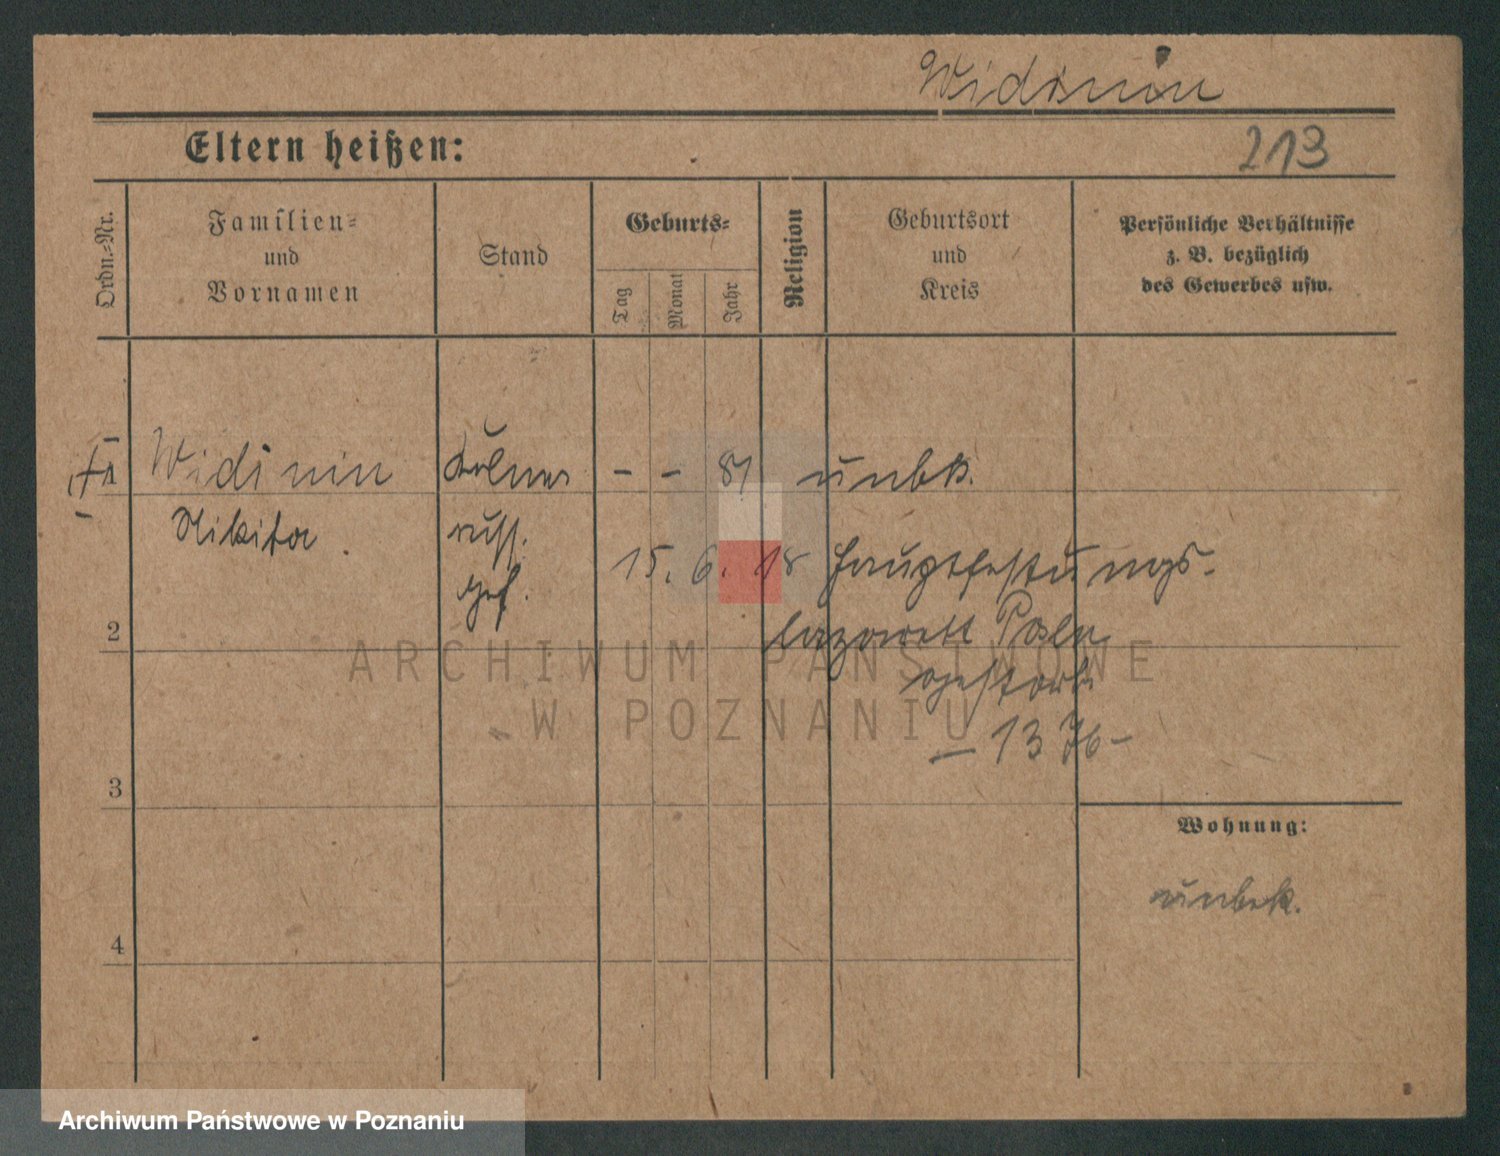 Widinin
Eltern heißen:
213
Ordn.-Nr.
Familien-
und
Vornamen
Stand
Geburts-
Tag
Monat
Jahr
Religion
Geburtsort
und
Kreis
Persönliche Verhältnisse
z. B. bezüglich
des Gewerbes usw.
1
Widinin
- - 81
unbk.
Nikita.
russ.
gef.
15. 6. 18
Hauptfestungs-
2
lazarett
gestorb.
- 1376 -
3
Wohnung:
unbek.
4
ARCHIWUM PAŃSTWOWE
W POZNANIU
Archiwum Państwowe w Poznaniu